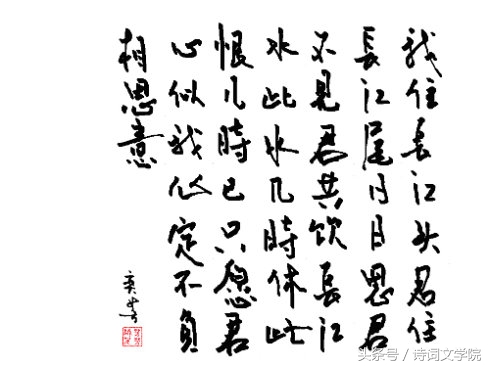 我住長江头君住
長江尾日日思君
不見君共饮長江
水此水几時休此
恨几時已只愿君
心似我心定不負
相思意
头条号 / 诗词文学院